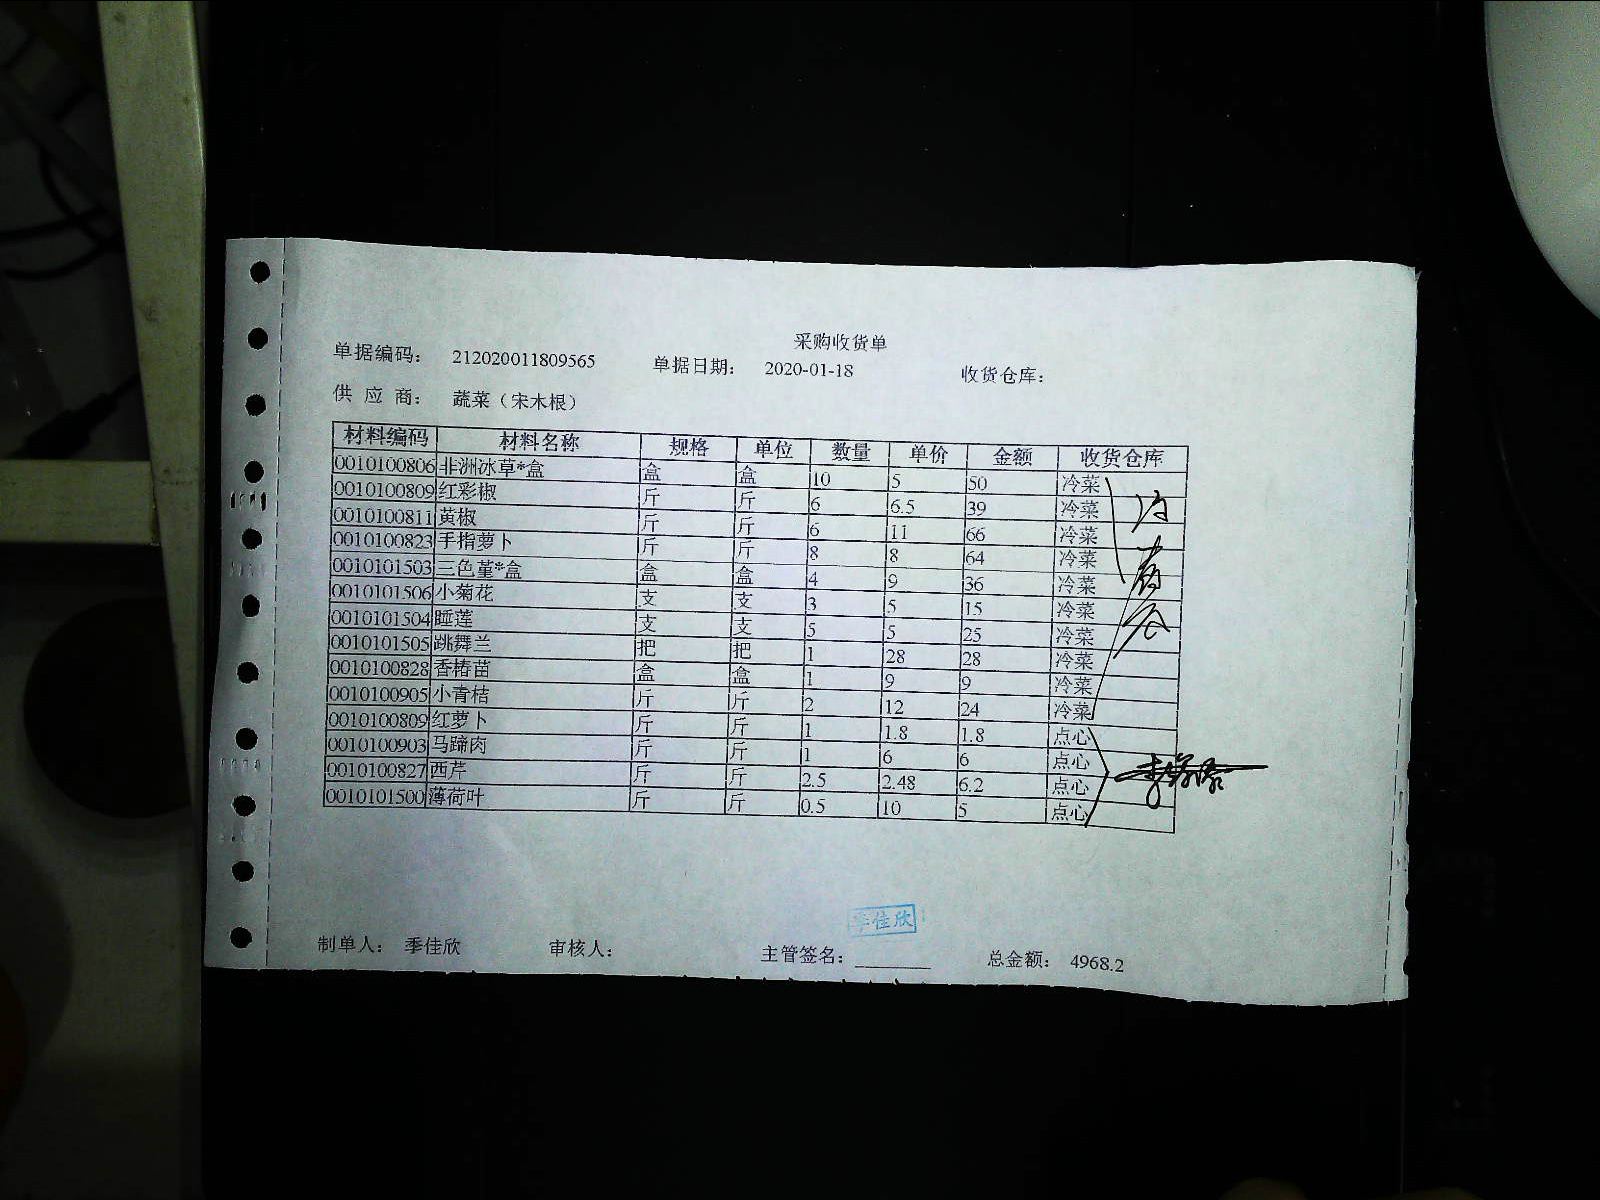 采购收货单
单据编码： 212020011809565 单据日期： 2020-01-18 收货仓库：
供 应 商： 蔬菜（宋木根）
材料编码 材料名称 规格 单位 数量 单价 金额 收货仓库
0010100806 非洲冰草*盒 盒 盒 10 5 50 冷菜
0010100809 红彩椒 斤 斤 6 6.5 39 冷菜
0010100811 黄椒 斤 斤 6 11 66 冷菜
0010100823 手指萝卜 斤 斤 8 8 64 冷菜
0010101503 三色堇*盒 盒 盒 4 9 36 冷菜
0010101506 小菊花 支 支 3 5 15 冷菜
0010101504 睡莲 支 支 5 5 25 冷菜
0010101505 跳舞兰 把 把 1 28 28 冷菜
0010100828 香椿苗 盒 盒 1 9 9 冷菜
0010100905 小青桔 斤 斤 2 12 24 冷菜
0010100809 红萝卜 斤 斤 1 1.8 1.8 点心
0010100903 马蹄肉 斤 斤 1 6 6 点心
0010100827 西芹 斤 斤 2.5 2.48 6.2 点心
0010101500 薄荷叶 斤 斤 0.5 10 5 点心
季佳欣
制单人： 季佳欣 审核人： 主管签名： 总金额： 4968.2